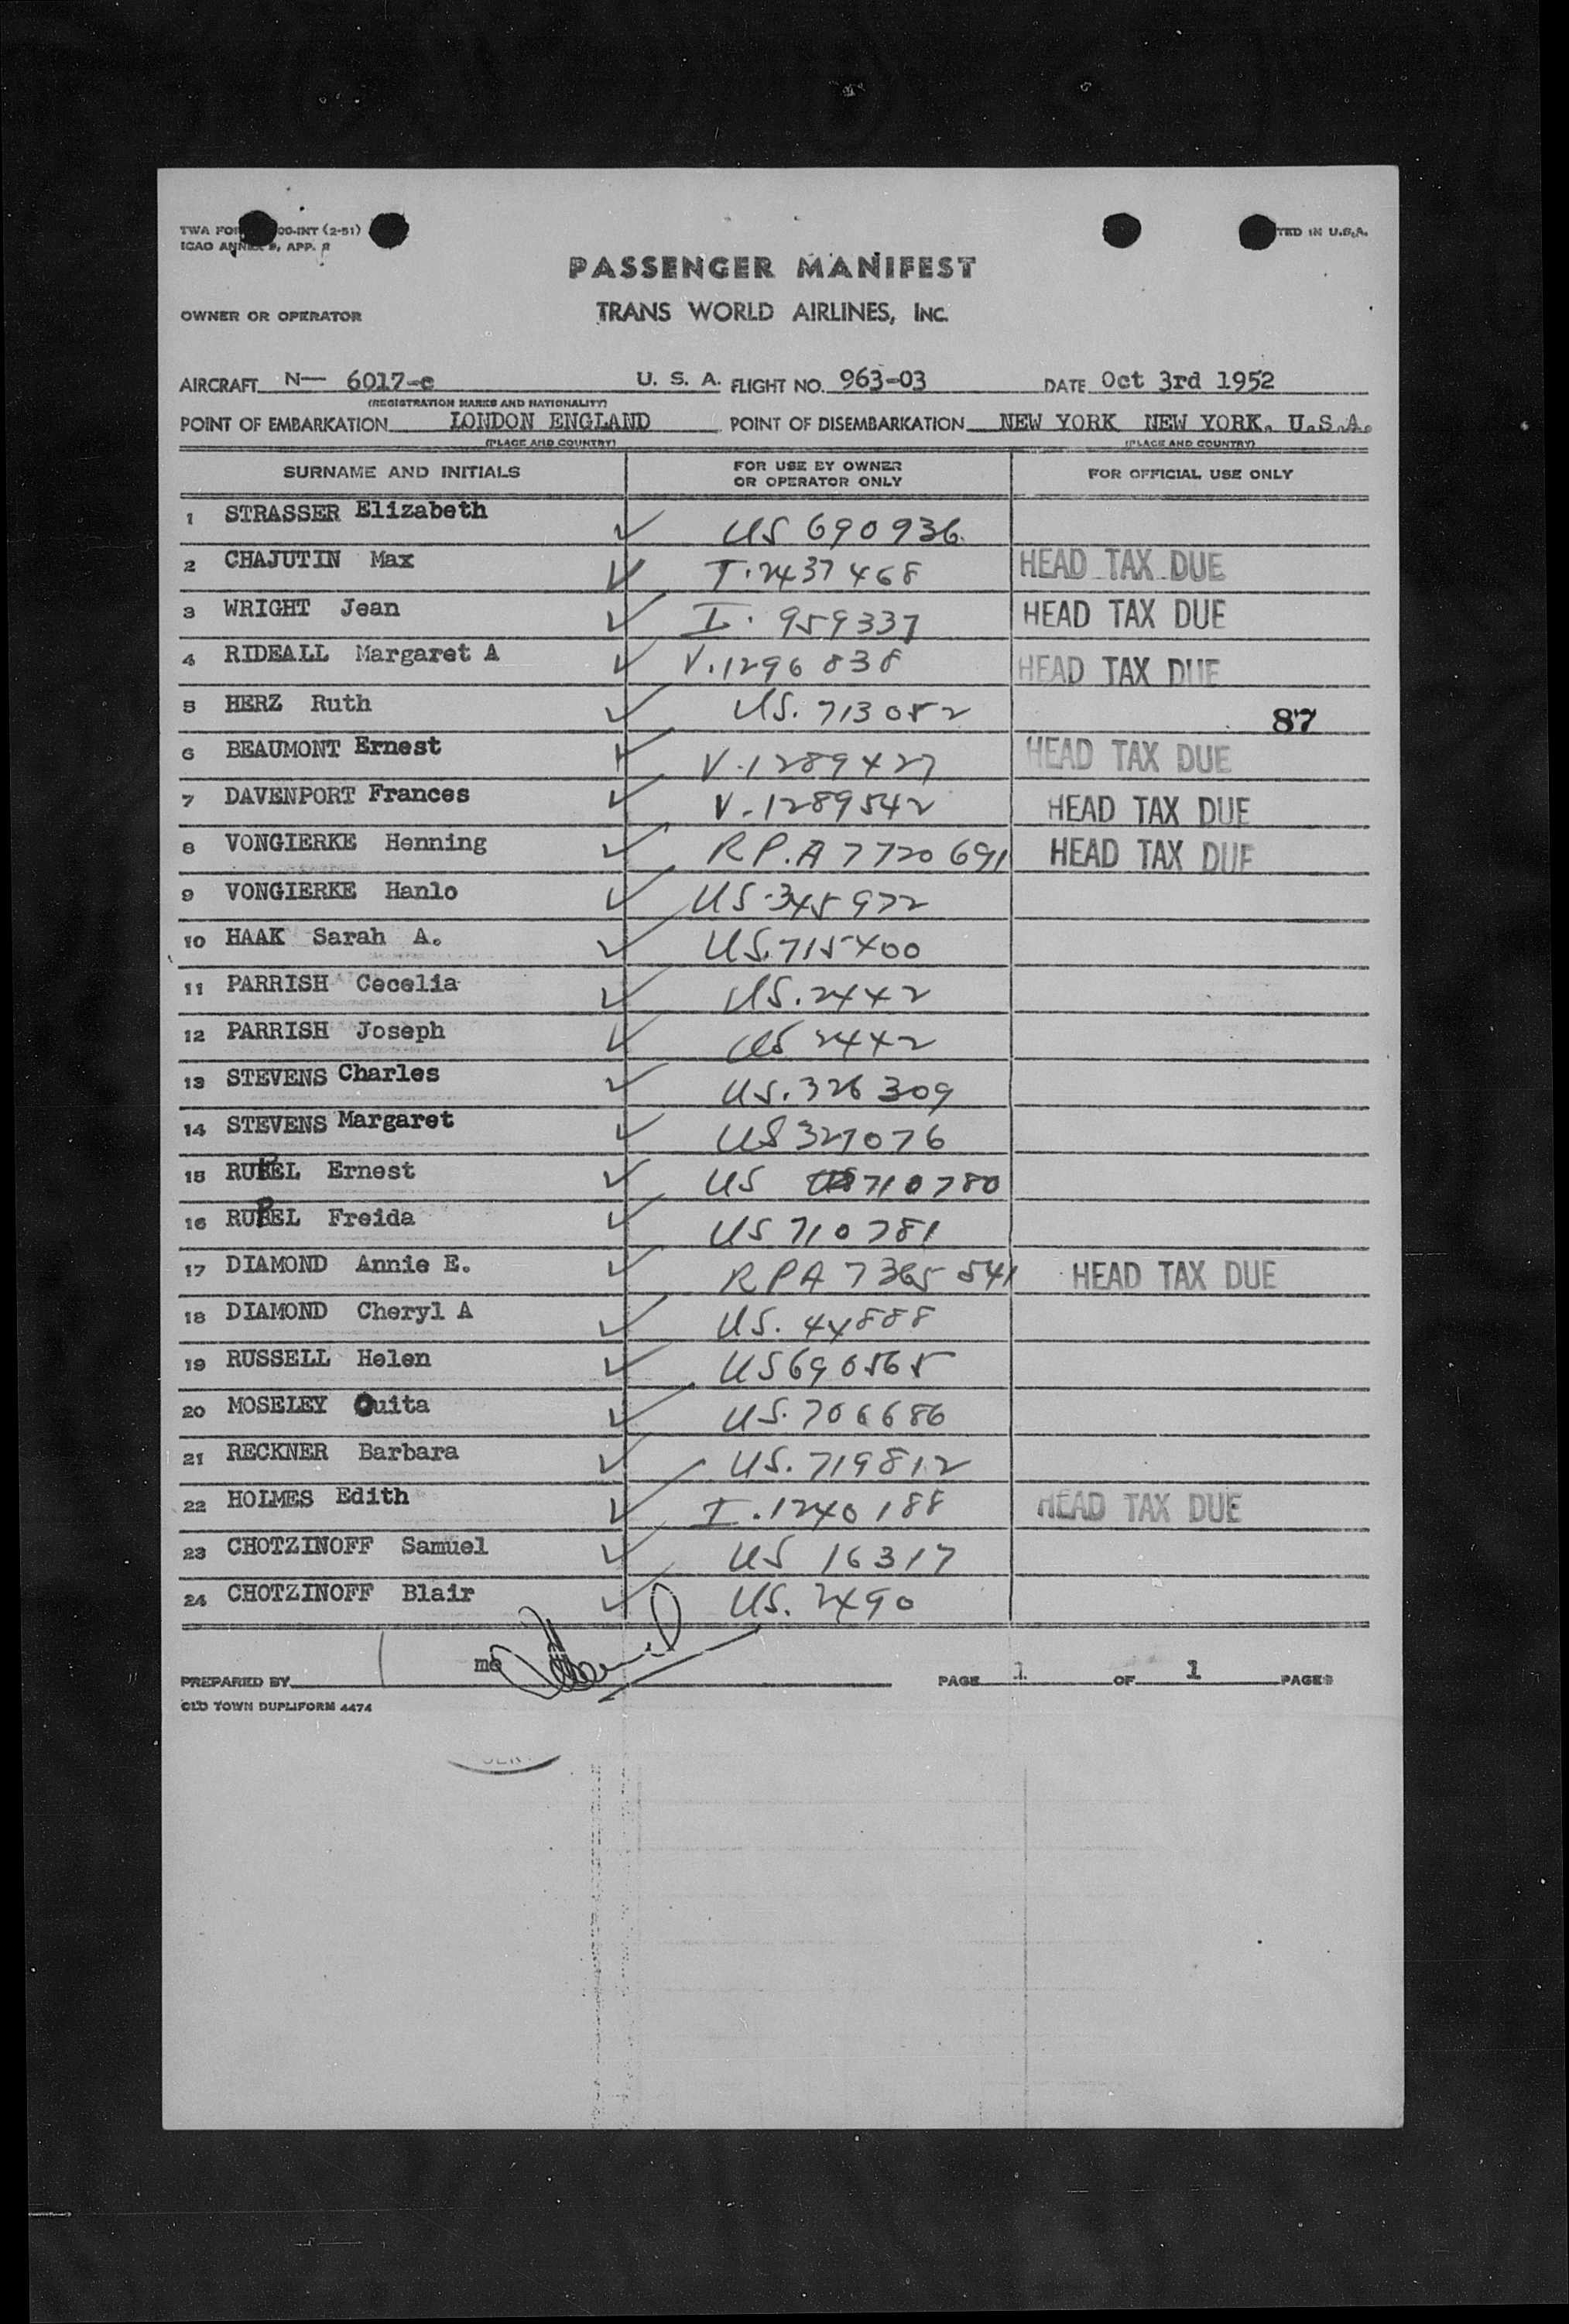 TWA FOR 00-INT (2-51)
ICAO ANNEX 9, APP. 
TED IN U.S.A.
PASSENGER MANIFEST
OWNER OR OPERATOR TRANS WORLD AIRLINES, INC.
AIRCRAFT N— 6017-c U. S. A. FLIGHT NO. 963-03 DATE Oct 3rd 1952
(REGISTRATION MARKS AND NATIONALITY)
POINT OF EMBARKATION LONDON ENGLAND POINT OF DISEMBARKATION NEW YORK NEW YORK. U.S.A.
(PLACE AND COUNTRY) (PLACE AND COUNTRY)
SURNAME AND INITIALS FOR USE BY OWNER OR OPERATOR ONLY FOR OFFICIAL USE ONLY
1 STRASSER Elizabeth ✓ US 690936.
2 CHAJUTIN Max ✓ I.2437468 HEAD TAX DUE
3 WRIGHT Jean ✓ I. 959337 HEAD TAX DUE
4 RIDEALL Margaret A ✓ V.1296838 HEAD TAX DUE
5 HERZ Ruth ✓ US. 713052 87
6 BEAUMONT Ernest ✓ V.1289427 HEAD TAX DUE
7 DAVENPORT Frances ✓ V.1289542 HEAD TAX DUE
8 VONGIERKE Henning ✓ RP.A 7720691 HEAD TAX DUE
9 VONGIERKE Hanlo ✓ US.345972
10 HAAK Sarah A. ✓ US.715400
11 PARRISH Cecelia ✓ US.2442
12 PARRISH Joseph ✓ US 2442
13 STEVENS Charles ✓ US.326309
14 STEVENS Margaret ✓ US327076
15 RUPEL Ernest ✓ US 710780
16 RUPEL Freida ✓ US 710781
17 DIAMOND Annie E. ✓ RPA 7365541 HEAD TAX DUE
18 DIAMOND Cheryl A ✓ US. 44888
19 RUSSELL Helen ✓ US690565
20 MOSELEY Ouita ✓ US.706686
21 RECKNER Barbara ✓ US.719812
22 HOLMES Edith ✓ I.1240188 HEAD TAX DUE
23 CHOTZINOFF Samuel ✓ US 16317
24 CHOTZINOFF Blair ✓ US. 2490
PREPARED BY mc PAGE 1 OF 1 PAGES
OLD TOWN DUPLIFORM 4474